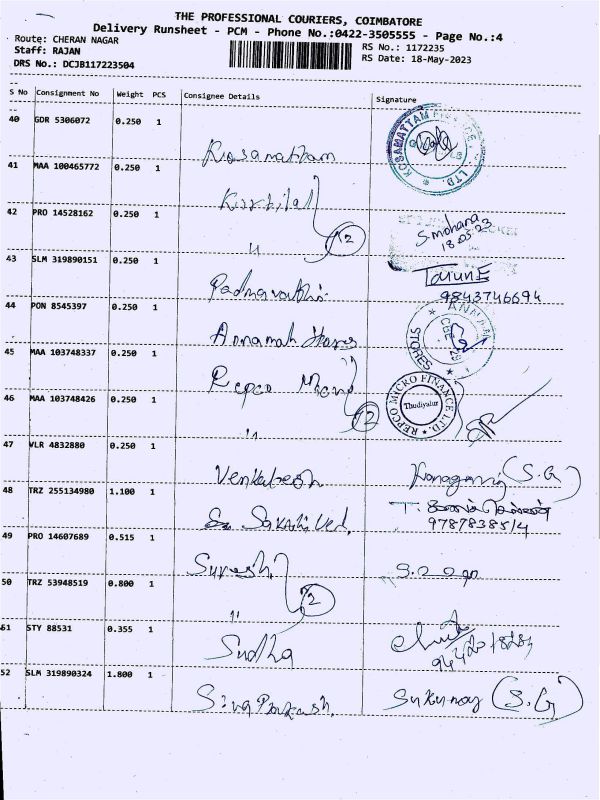 THE PROFESSIONAL COURIERS, COIMBATORE
Delivery Runsheet - PCM - Phone No.:0422-3505555 - Page No.:4
Route: CHERAN NAGAR
RS No.: 1172235
Staff: RAJAN
RS Date: 18-May-2023
DRS No.: DCJB117223504
S No Consignment No Weight PCS Consignee Details Signature
40 GDR 5306072 0.250 1
Kosamattam
KOSAMATTAM FINANCE LTD.
41 MAA 100465772 0.250 1
42 PRO 14528162 0.250 1
" 2
Smohana
18.05.23
43 SLM 319890151 0.250 1
Padmavathi
9843746694
44 PON 8545397 0.250 1
Annamah Stores
ANNAM STORES CBE-29
45 MAA 103748337 0.250 1
Repco Micro
REPCO MICRO FINANCE LTD.
Thudiyalur
46 MAA 103748426 0.250 1
" 2
47 VLR 4832880 0.250 1
Venkatesh
(S.G)
48 TRZ 255134980 1.100 1
T.
9787838514
49 PRO 14607689 0.515 1
Suresh
50 TRZ 53948519 0.800 1
" 2
51 STY 88531 0.355 1
Sudha
52 SLM 319890324 1.800 1
Siva Prakash
(S.G)